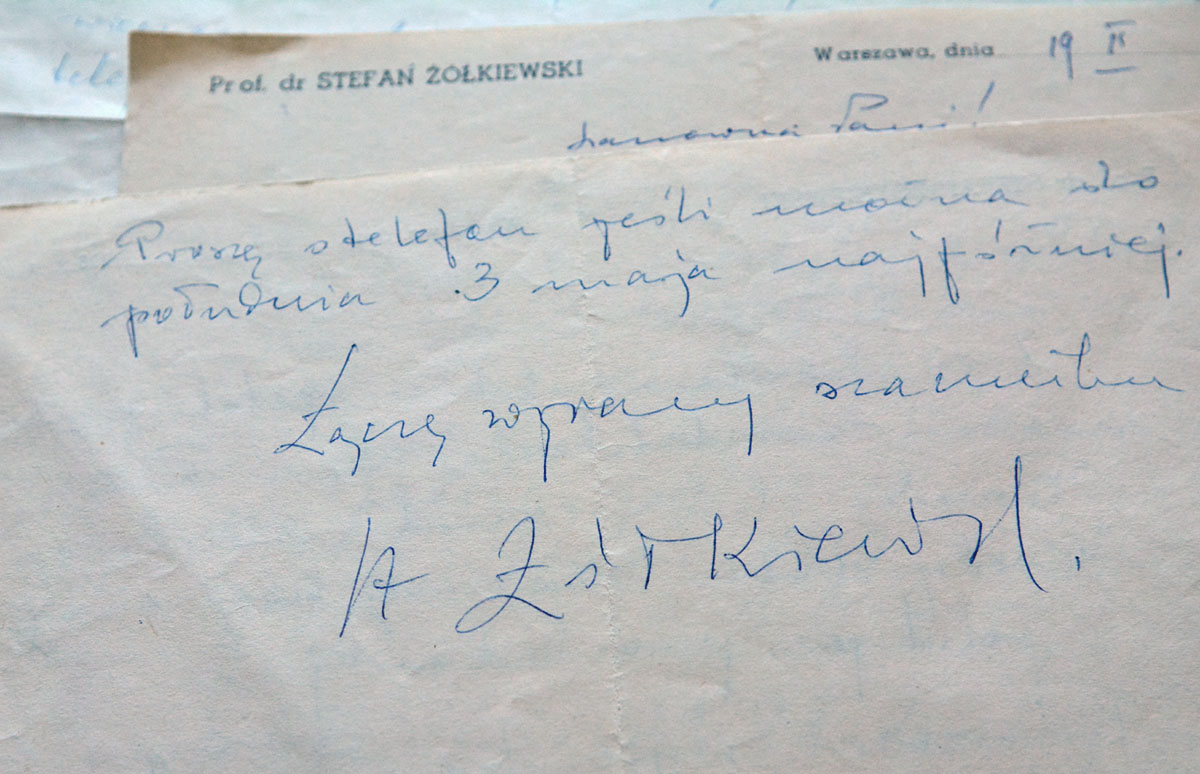 Prof. dr STEFAN ŻÓŁKIEWSKI
Warszawa, dnia 19
Szanowna Pani!
Proszę o telefon jeśli można do
południa 3 maja najpóźniej.
Łączę wyrazy szacunku
St Żółkiewski.